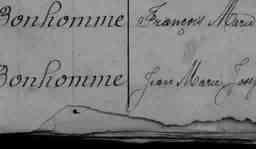 Bonhomme François Marie
Bonhomme Jean Marie Josep